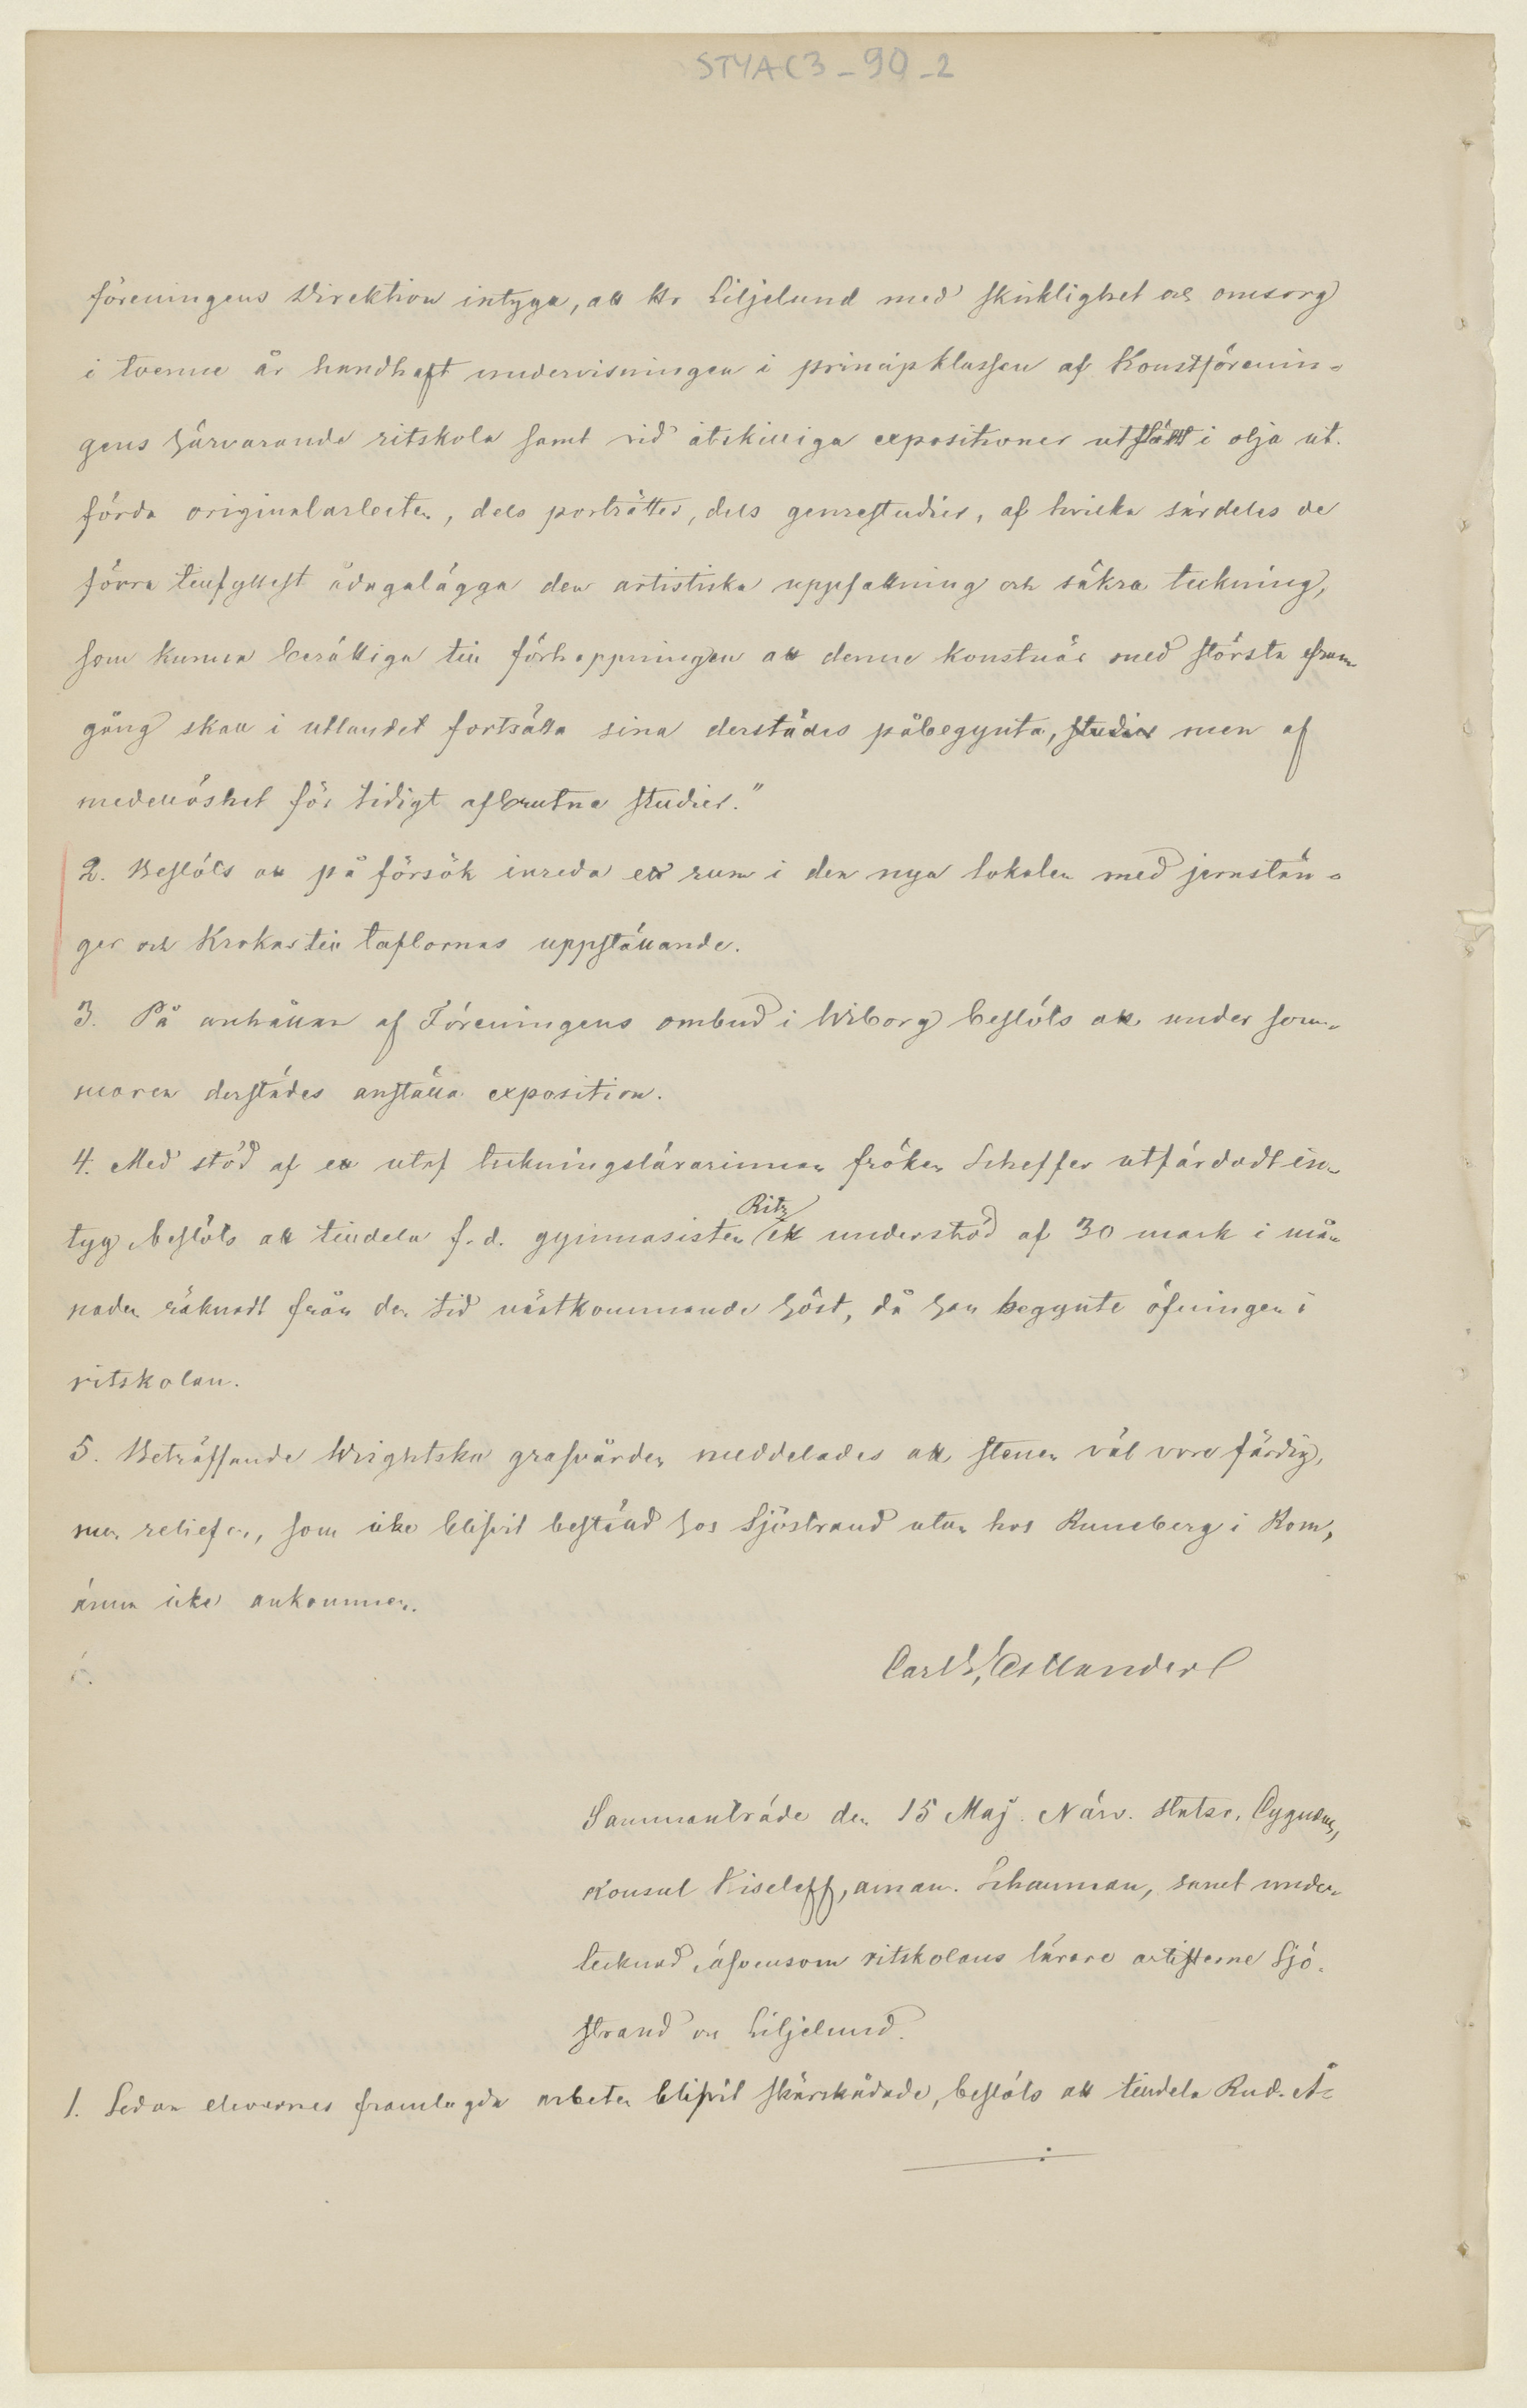 STYA C3 - 90 - 2
föreningens Direktion intyga, att Hr Liljelund med skicklighet och omsorg
i tvenne år handhaft undervisningen i principklassen af Konstförenin-
gens härvarande ritskola samt vid åtskilliga expositioner utställt i olja ut-
förda originalarbeten, dels porträtter, dels genrestudier, af hvilka särdeles de
förra tillfyllest ådagalägga den artistiska uppfattning och säkra teckning,
som kunna berättiga till förhoppningen att denne konstnär med största fram-
gång skall i utlandet fortsätta sina derstädes påbegynta, studier men af
medellöshet för tidigt afbrutna studier."
2. Beslöts att på försök inreda ett rum i den nya lokalen med jernstän-
ger och krokar till taflornas uppställande.
3. På anhållan af Föreningens ombud i Wiborg beslöts att under som-
maren derstädes anställa exposition.
4. Med stöd af ett utaf teckningslärarinnan fröken Scheffer utfärdadt in-
Ritz
tyg beslöts att tilldela f.d. gymnasisten ett understöd af 30 mark i må-
naden räknadt från den tid nästkommande höst, då han begynte öfningen i
ritskolan.
5. Beträffande Wrightska grafvården meddelades att stenen väl vore färdig,
men reliefen, som icke blifvit beställd hos Sjöstrand utan hos Runeberg i Rom,
ännu icke ankommen.
Carl G. Estlander
6.
Sammanträde den 15 Maj. Närv. Statsr. Cygnæus,
Konsul Kiseleff, aman. Schauman, samt under-
tecknad, äfvensom ritskolans lärare artisterne Sjö-
strand och Liljelund.
1. Sedan elevernes framlagda arbeten blifvit skärskådade, beslöts att tilldela Rud. Å-